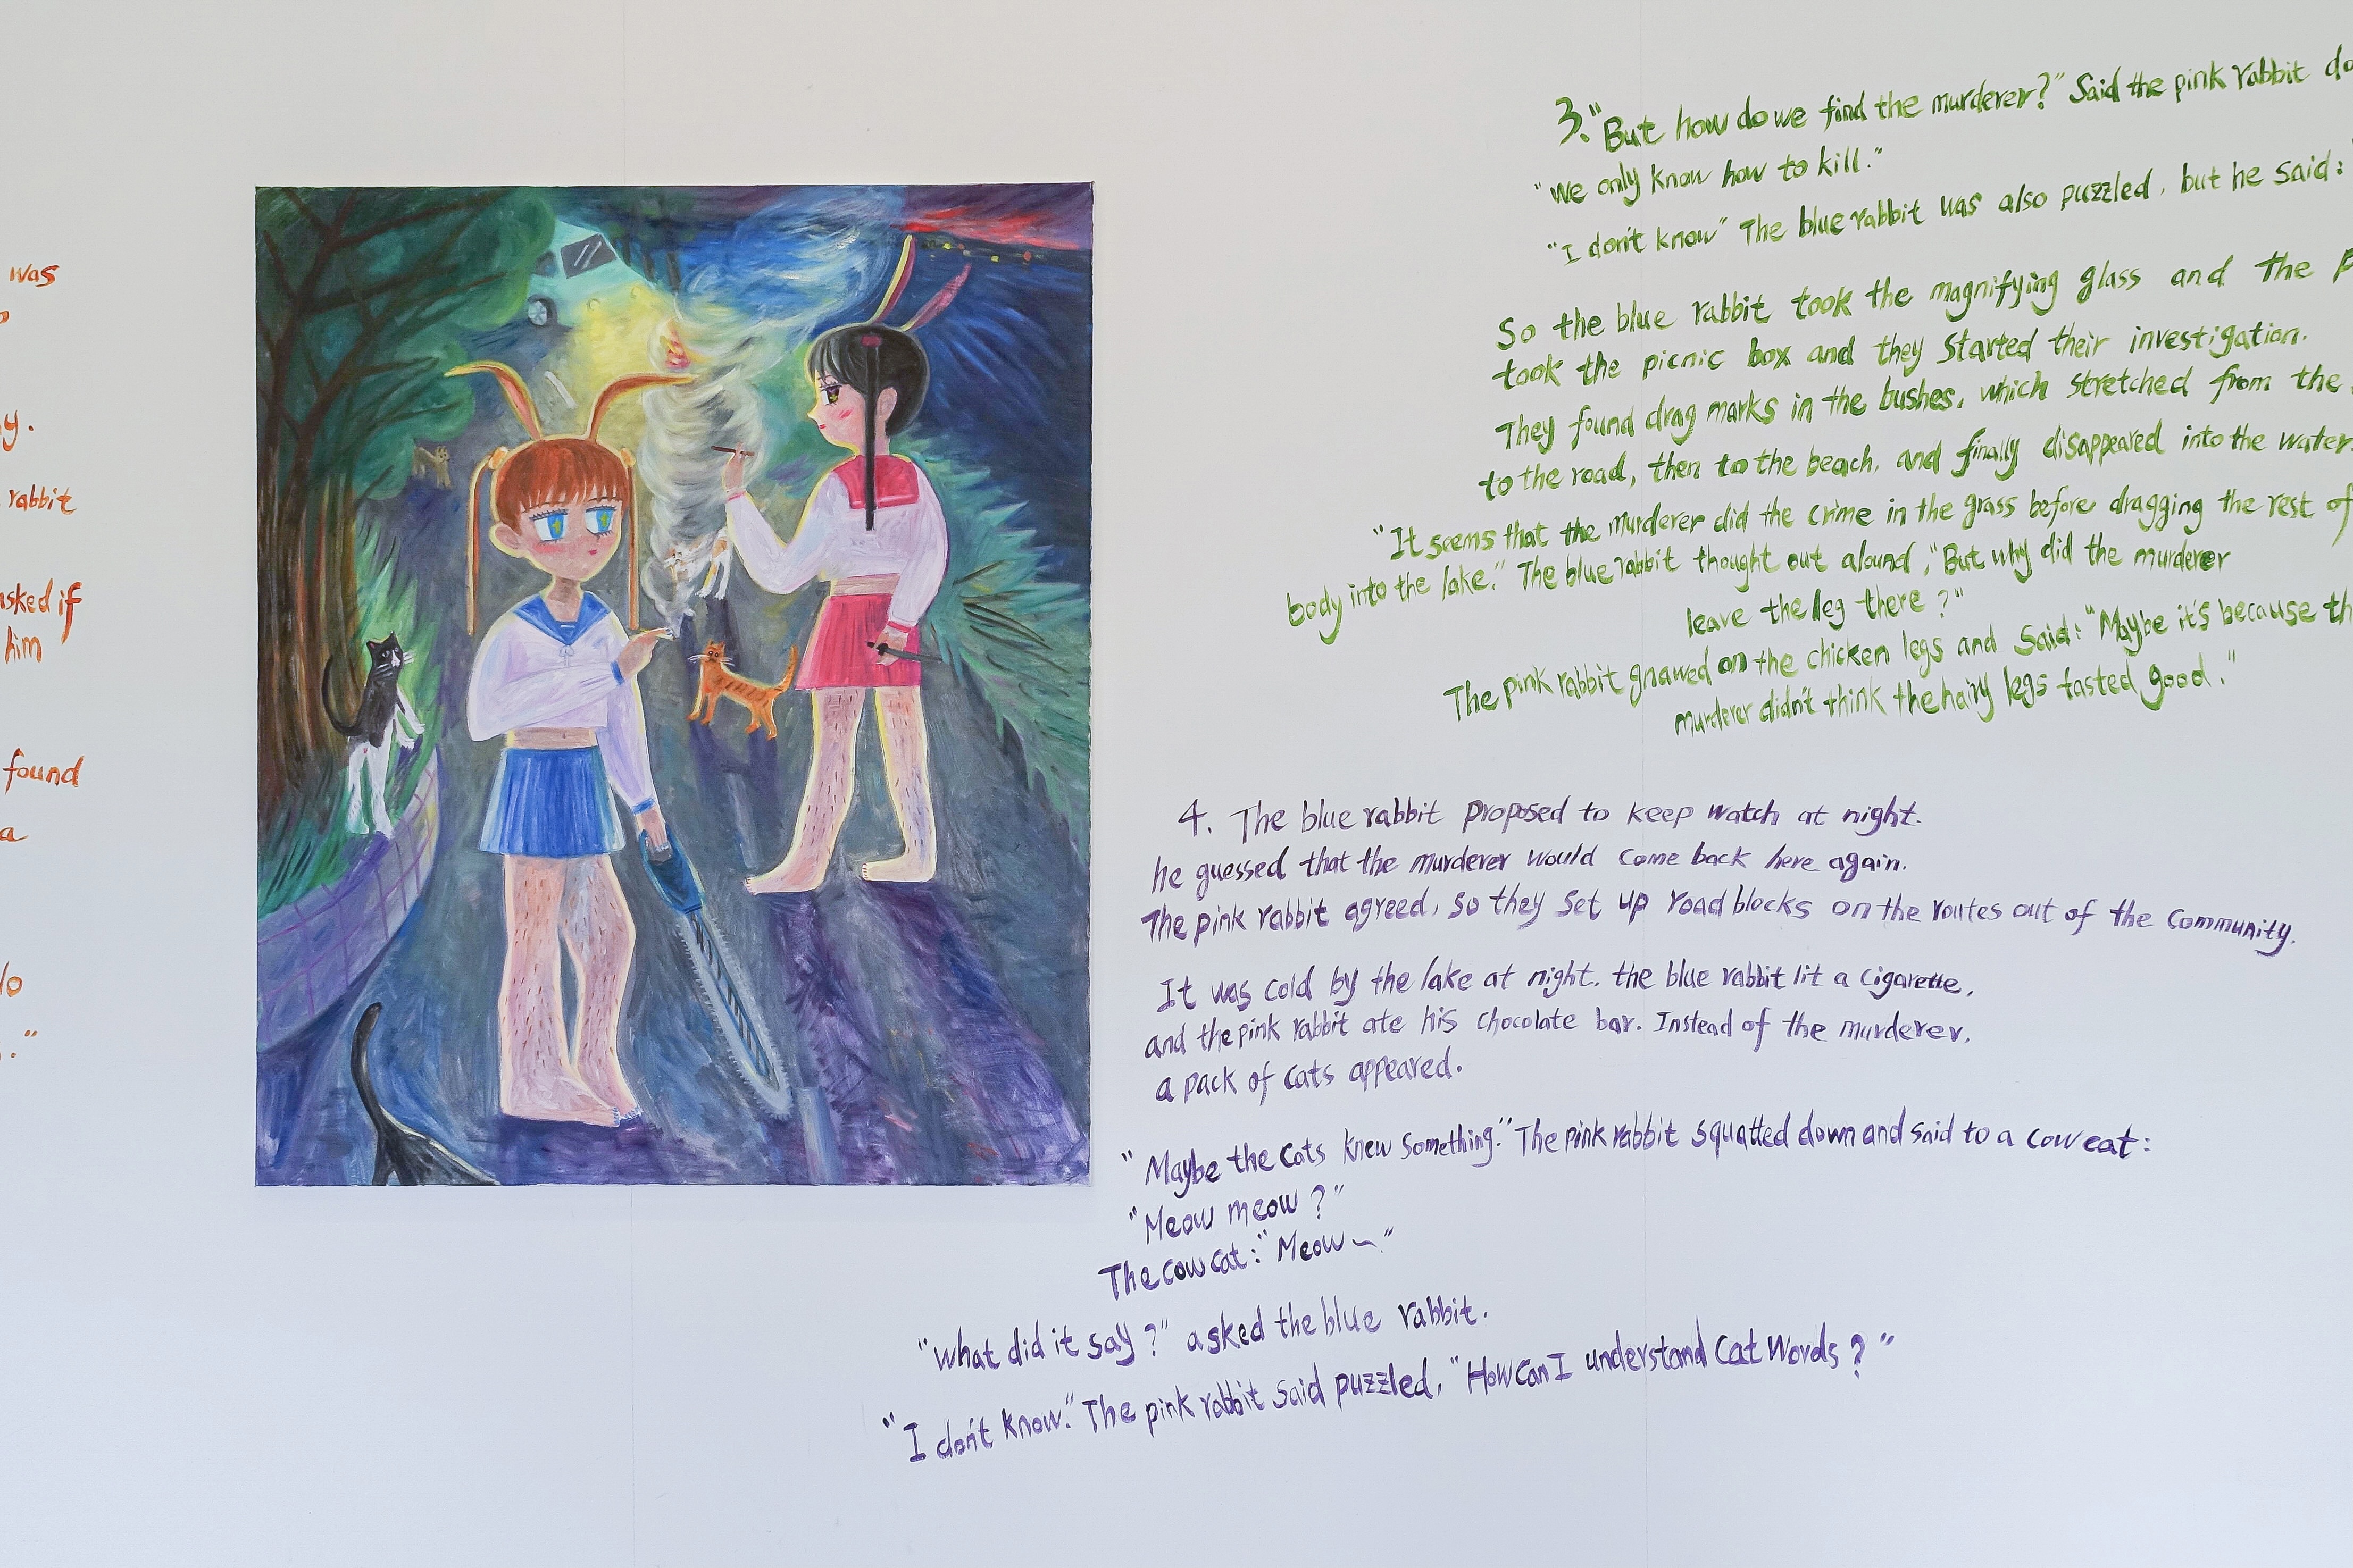 was
y.
rabbit
asked if
him
found
a
."
3. "But how do we find the murderer?" Said the pink rabbit
"We only know how to kill."
"I don't know" The blue rabbit was also puzzled, but he said:
So the blue rabbit took the magnifying glass and the
took the picnic box and they started their investigation.
They found drag marks in the bushes, which stretched from the
to the road, then to the beach, and finally disappeared into the water.
"It seems that the murderer did the crime in the grass before dragging the rest of
body into the lake." The blue rabbit thought out alound, "But why did the murderer
leave the leg there?"
The pink rabbit gnawed on the chicken legs and said: "Maybe it's because
murderer didn't think the hairy legs tasted good."
4. The blue rabbit proposed to keep watch at night.
he guessed that the murderer would come back here again.
The pink rabbit agreed, so they set up road blocks on the routes out of the community.
It was cold by the lake at night. the blue rabbit lit a cigarette,
and the pink rabbit ate his chocolate bar. Instead of the murderer,
a pack of cats appeared.
"Maybe the cats knew something." The pink rabbit squatted down and said to a cow cat:
"Meow meow?"
The cow cat: "Meow~"
"what did it say?" asked the blue rabbit.
"I don't know." The pink rabbit said puzzled, "How can I understand Cat Words?"